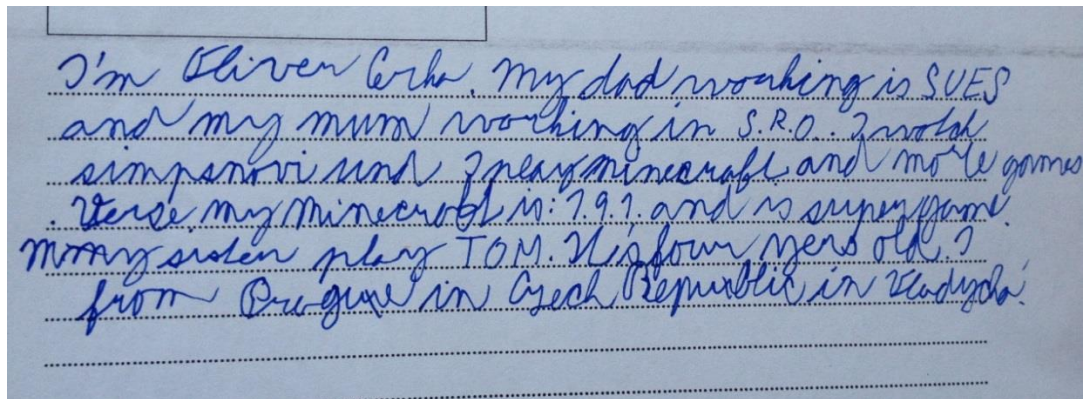 I'm Oliver Cerha. My dad working is SUES
and my mum working in S.R.O.. I watch
simpsnovi und I play minecraft and more games
. Verse my minecraft is: 1.9.1. and is super game.
mmy sister play TOM. His four yers old. I
from Prague in Czech Republic in